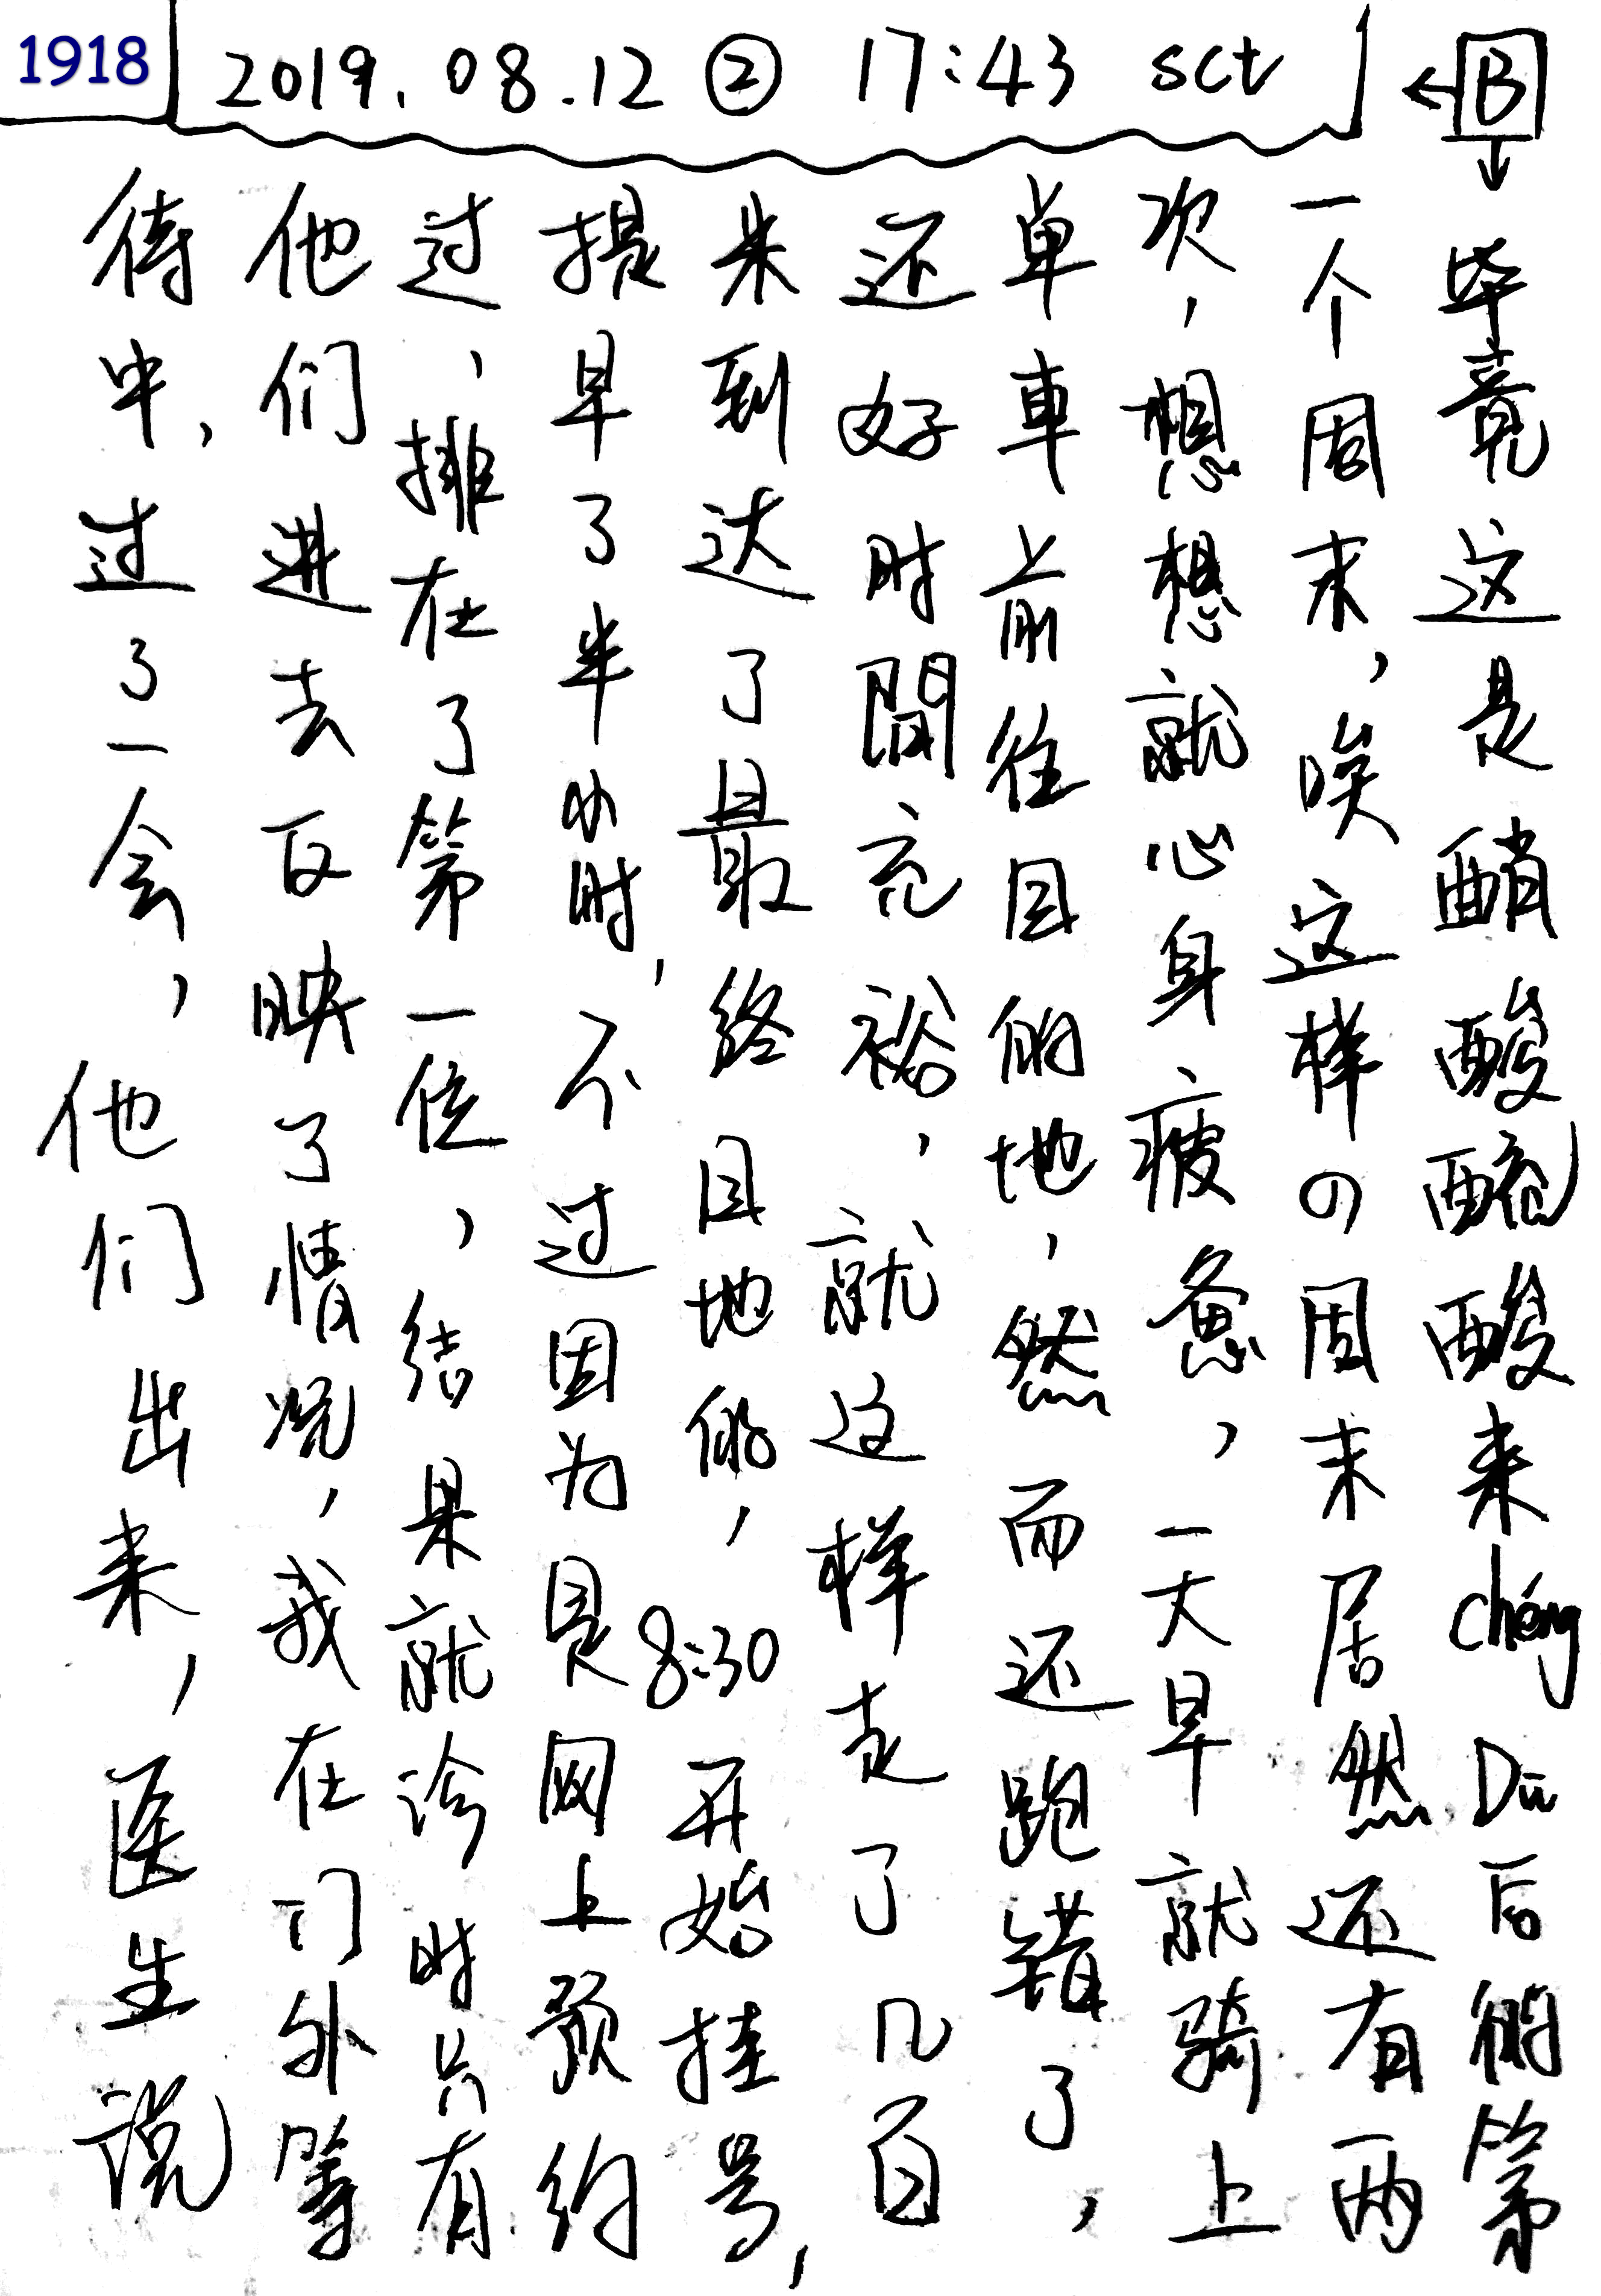 1918
2019.08.12 ② 17:43 sct
←B↓
毕竟这是醋酸酸来chéng Dū后的第
一个周末,唉这样の周末居然还有两
次,想想就心身疲惫,一大早就骑上
单車前往目的地,然而还跑错了,
还好时間充裕,就这样走了几百
米到达了最终目地的,8:30开始挂号,
提早了半小时,不过因为是网上预约
过,排在了第一位,结果就诊时只有
他们进去反映了情况,我在门外等
待中,过了一会,他们出来,医生说